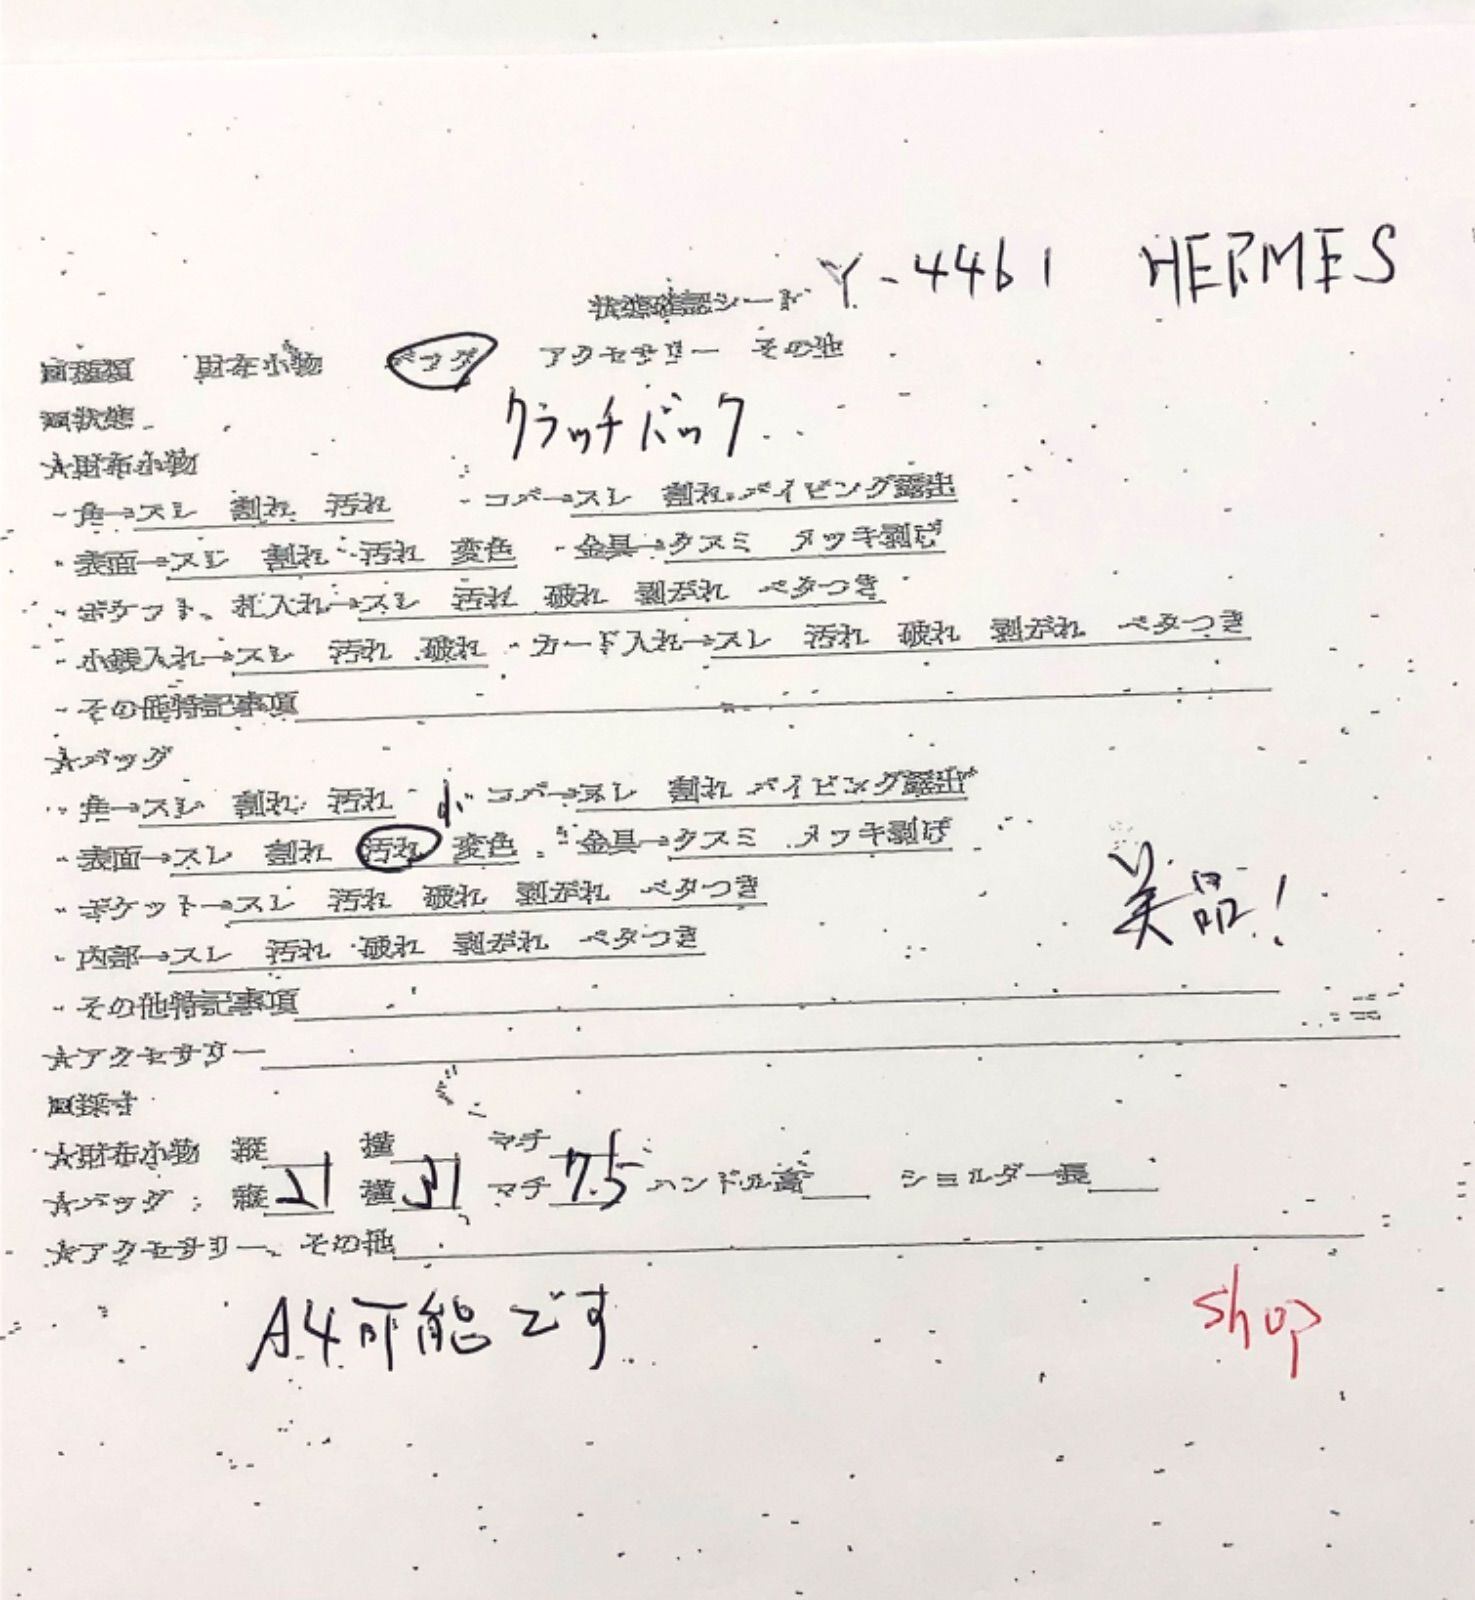 Y-4461 HERMES
状態確認シート
□種類 財布小物 バッグ アクセサリー その他
□状態
クラッチバック
★財布小物
・角→スレ 割れ 汚れ ・コバ→スレ 割れ パイピング露出
・表面→スレ 割れ 汚れ 変色 ・金具→クスミ メッキ剥げ
・ポケット、札入れ→スレ 汚れ 破れ 剥がれ ベタつき
・小銭入れ→スレ 汚れ 破れ ・カード入れ→スレ 汚れ 破れ 剥がれ ベタつき
・その他特記事項
★バッグ
・角→スレ 割れ 汚れ 小 コバ→スレ 割れ パイピング露出
・表面→スレ 割れ 汚れ 変色 ・金具→クスミ メッキ剥げ
・ポケット→スレ 汚れ 破れ 剥がれ ベタつき
美品!
・内部→スレ 汚れ 破れ 剥がれ ベタつき
・その他特記事項
★アクセサリー
□採寸
★財布小物 縦 横 マチ
★バッグ 縦21 横31 マチ7.5 ハンドル高 ショルダー長
★アクセサリー、その他
A4可能です
shop